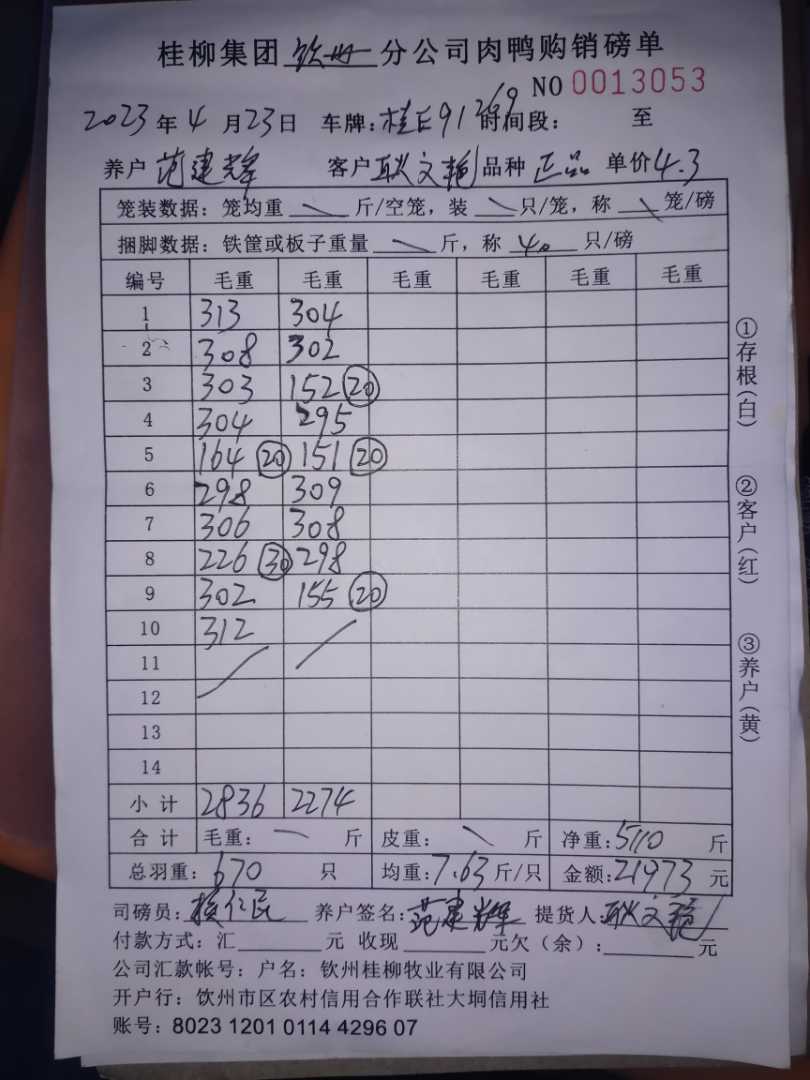 桂柳集团 钦州 分公司肉鸭购销磅单
NO 0013053
2023年4月23日 车牌:桂E91269 时间段: 至
养户 范建辉 客户 耿文艳 品种 正品 单价4.3
笼装数据:笼均重 \ 斤/空笼,装 \ 只/笼,称 \ 笼/磅
捆脚数据:铁筐或板子重量 \ 斤,称 40 只/磅
编号 毛重 毛重 毛重 毛重 毛重 毛重
1 313 304
2 308 302
3 303 152 20
4 304 295
5 164 20 151 20
6 298 309
7 306 308
8 226 30 298
9 302 155 20
10 312
11
12
13
14
小计 2836 2274
合计 毛重: 斤 皮重: \ 斤 净重:5110 斤
总羽重:670 只 均重:7.63斤/只 金额:21973 元
司磅员: 仁民 养户签名:范建辉 提货人:耿文艳
付款方式:汇 元 收现 元欠(余): 元
公司汇款帐号:户名:钦州桂柳牧业有限公司
开户行:饮州市区农村信用合作联社大垌信用社
账号:8023 1201 0114 4296 07
①存根(白)
②客户(红)
③养户(黄)